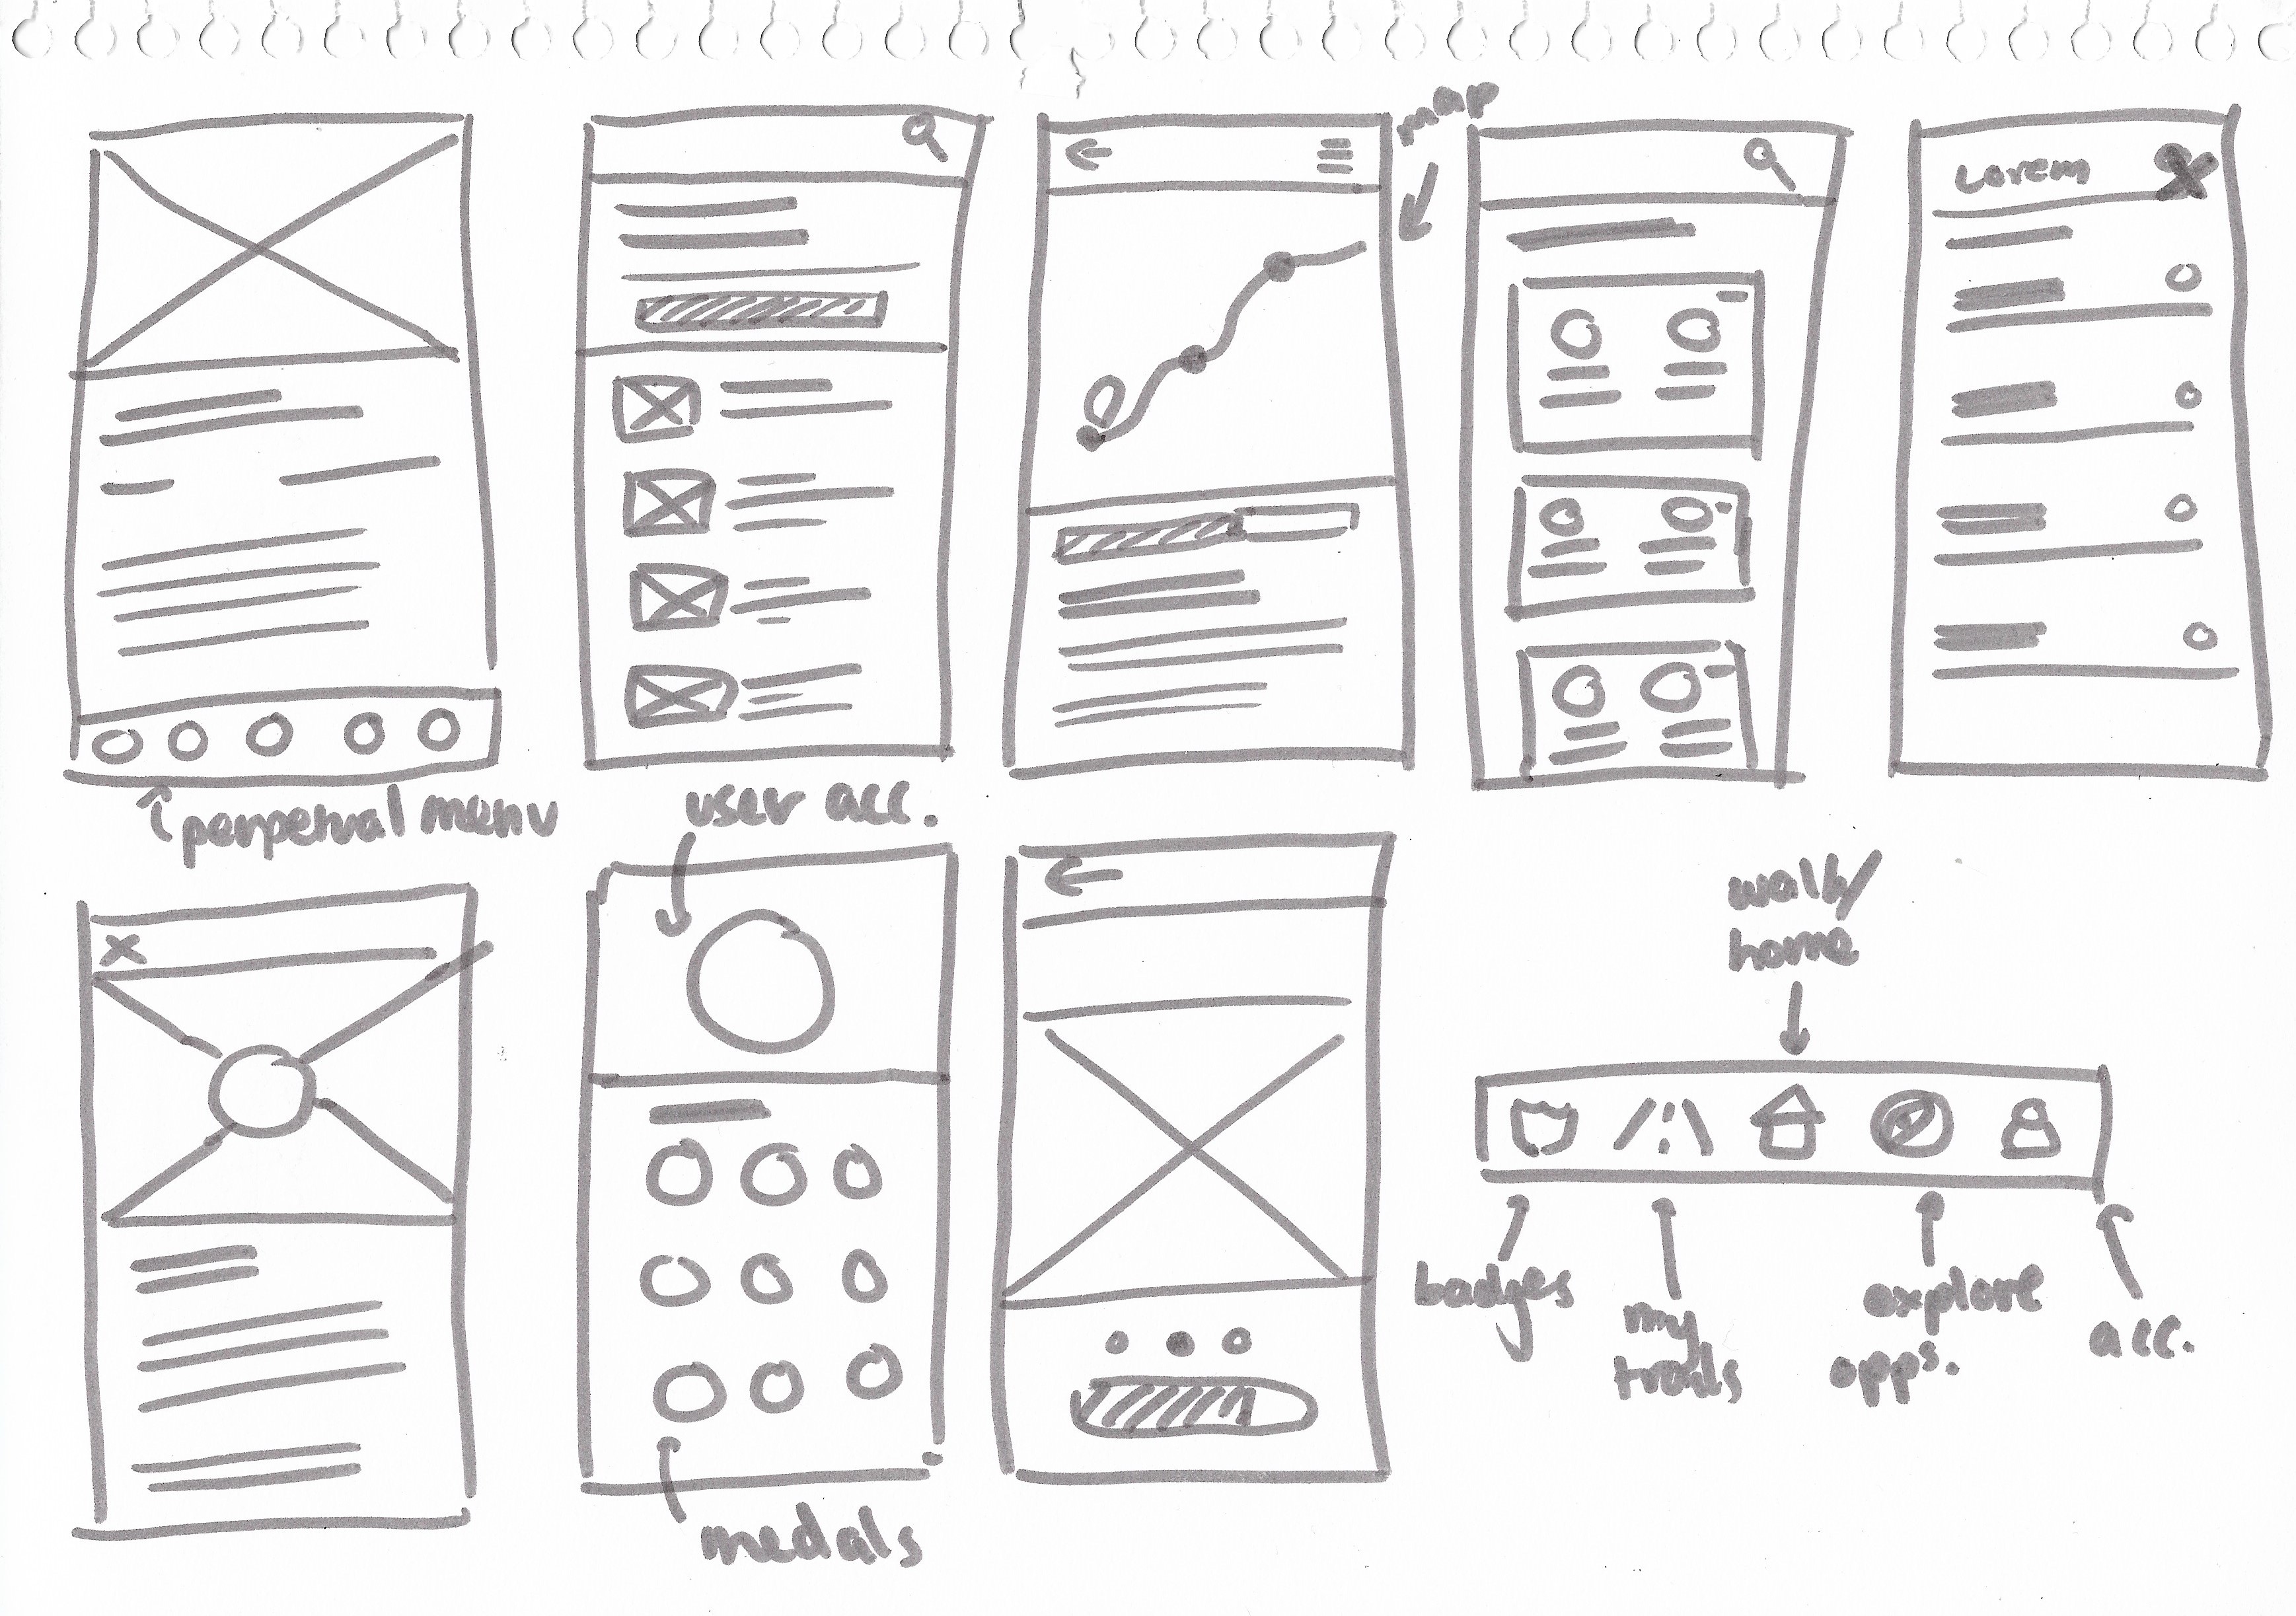 map
Lorem
perpetual menu
user acc.
walk/
home
badges
my
trails
explore
opps.
acc.
medals